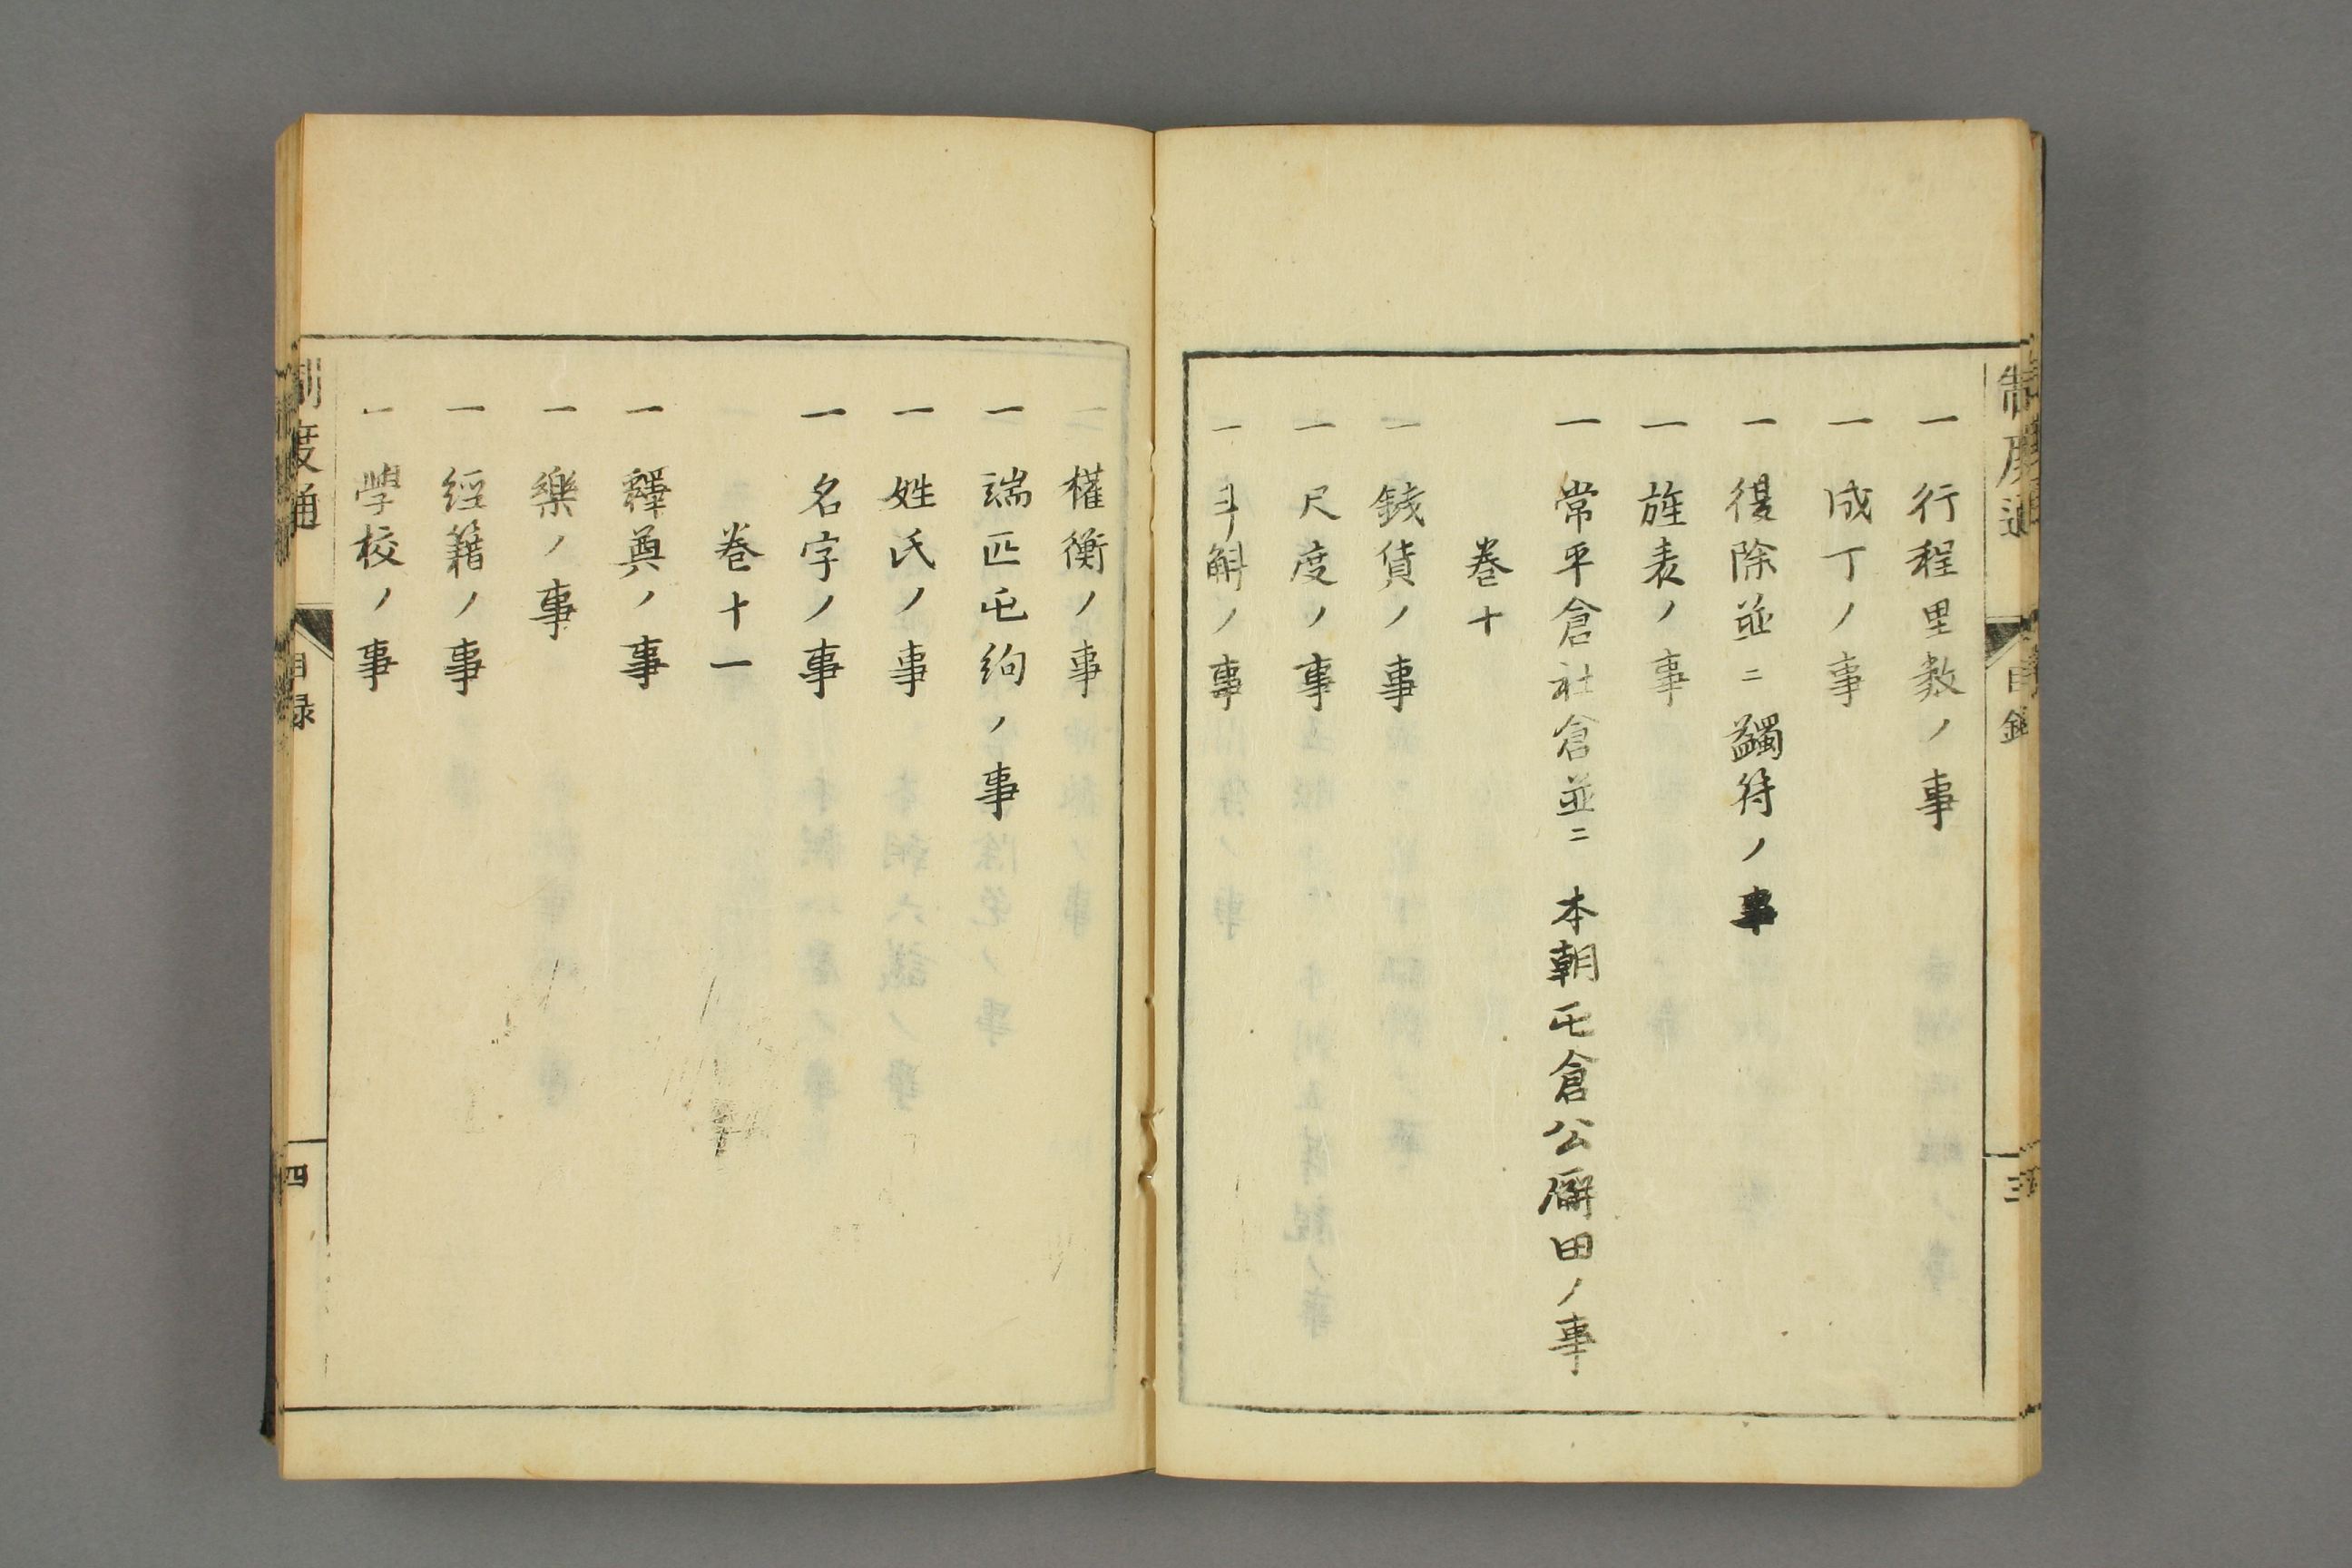 制度通 目録 三
一 行程里数ノ事
一 成丁ノ事
一 復除並ニ蠲符ノ事
一 旌表ノ事
一 常平倉社倉並ニ 本朝屯倉公廨田ノ事
巻十
一 銭貨ノ事
一 尺度ノ事
一 斗斛ノ事
一 權衡ノ事
一 端匹屯絇ノ事
一 姓氏ノ事
一 名字ノ事
巻十一
一 釋奠ノ事
一 樂ノ事
一 經籍ノ事
一 學校ノ事
制度通 目録 四